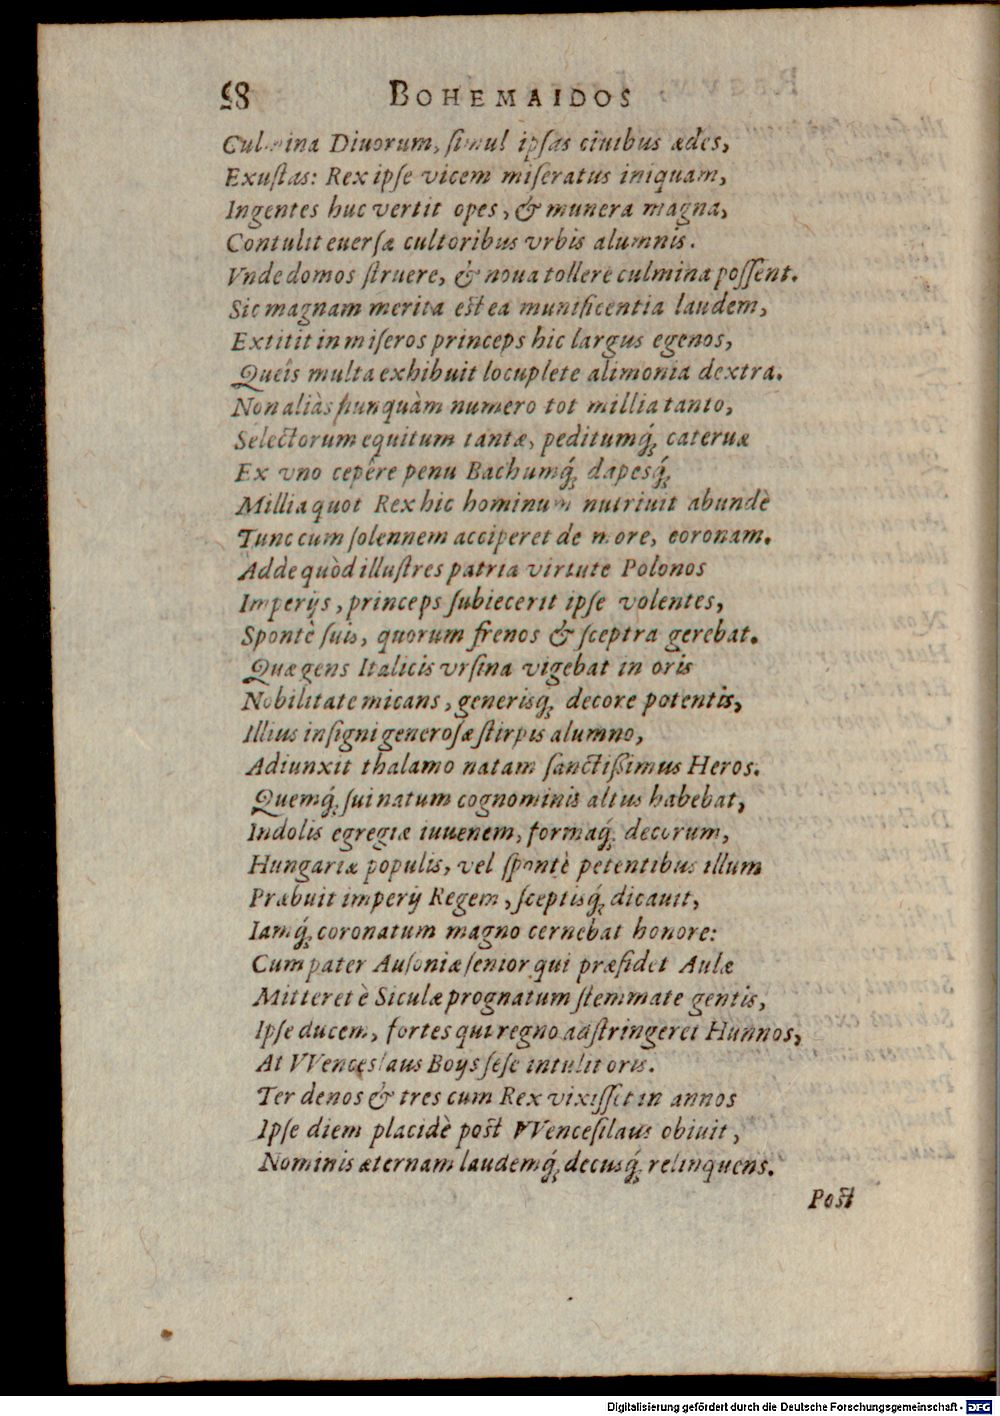 58 BOHEMAIDOS
Culmina Diuorum, ſimul ipſas ciuibus ædes,
Exuſtas: Rex ipſe vicem miſeratus iniquam,
Ingentes huc vertit opes, & munera magna,
Contulit euerſæ cultoribus vrbis alumnis.
Vnde domos ſtruere, & noua tollere culmina poſſent.
Sic magnam merita eſt ea munificentia laudem,
Extitit in miſeros princeps hic largus egenos,
Queîs multa exhibuit locuplete alimonia dextra.
Non aliàs nunquàm numero tot millia tanto,
Selectorum equitum tantæ, peditumq́; cateruæ
Ex vno cepêre penu Bachumq́; dapesq́;
Millia quot Rex hic hominum nutriuit abundè
Tunc cum ſolennem acciperet de more, coronam.
Adde quòd illuſtres patria virtute Polonos
Imperijs, princeps ſubiecerit ipſe volentes,
Spontè ſuis, quorum frenos & ſceptra gerebat.
Quæ gens Italicis vrſina vigebat in oris
Nobilitate micans, generisq́; decore potentis,
Illius inſigni generoſæ ſtirpis alumno,
Adiunxit thalamo natam ſanctißimus Heros.
Quemq́; ſui natum cognominis altus habebat,
Indolis egregiæ iuuenem, formaq́; decorum,
Hungariæ populis, vel ſpontè petentibus illum
Præbuit imperij Regem, ſceptisq́; dicauit,
Iamq́; coronatum magno cernebat honore:
Cum pater Auſoniæ ſenior qui præſidet Aulæ
Mitteret è Siculæ prognatum ſtemmate gentis,
Ipſe ducem, fortes qui regno adſtringeret Hunnos,
At VVenceslaus Boijs ſeſe intulit oris.
Ter denos & tres cum Rex vixiſſet in annos
Ipſe diem placidè poſt VVenceſilaus obiuit,
Nominis æternam laudemq́; decusq́; relinquens.
Poſt
Digitalisierung gefördert durch die Deutsche Forschungsgemeinschaft - DFG